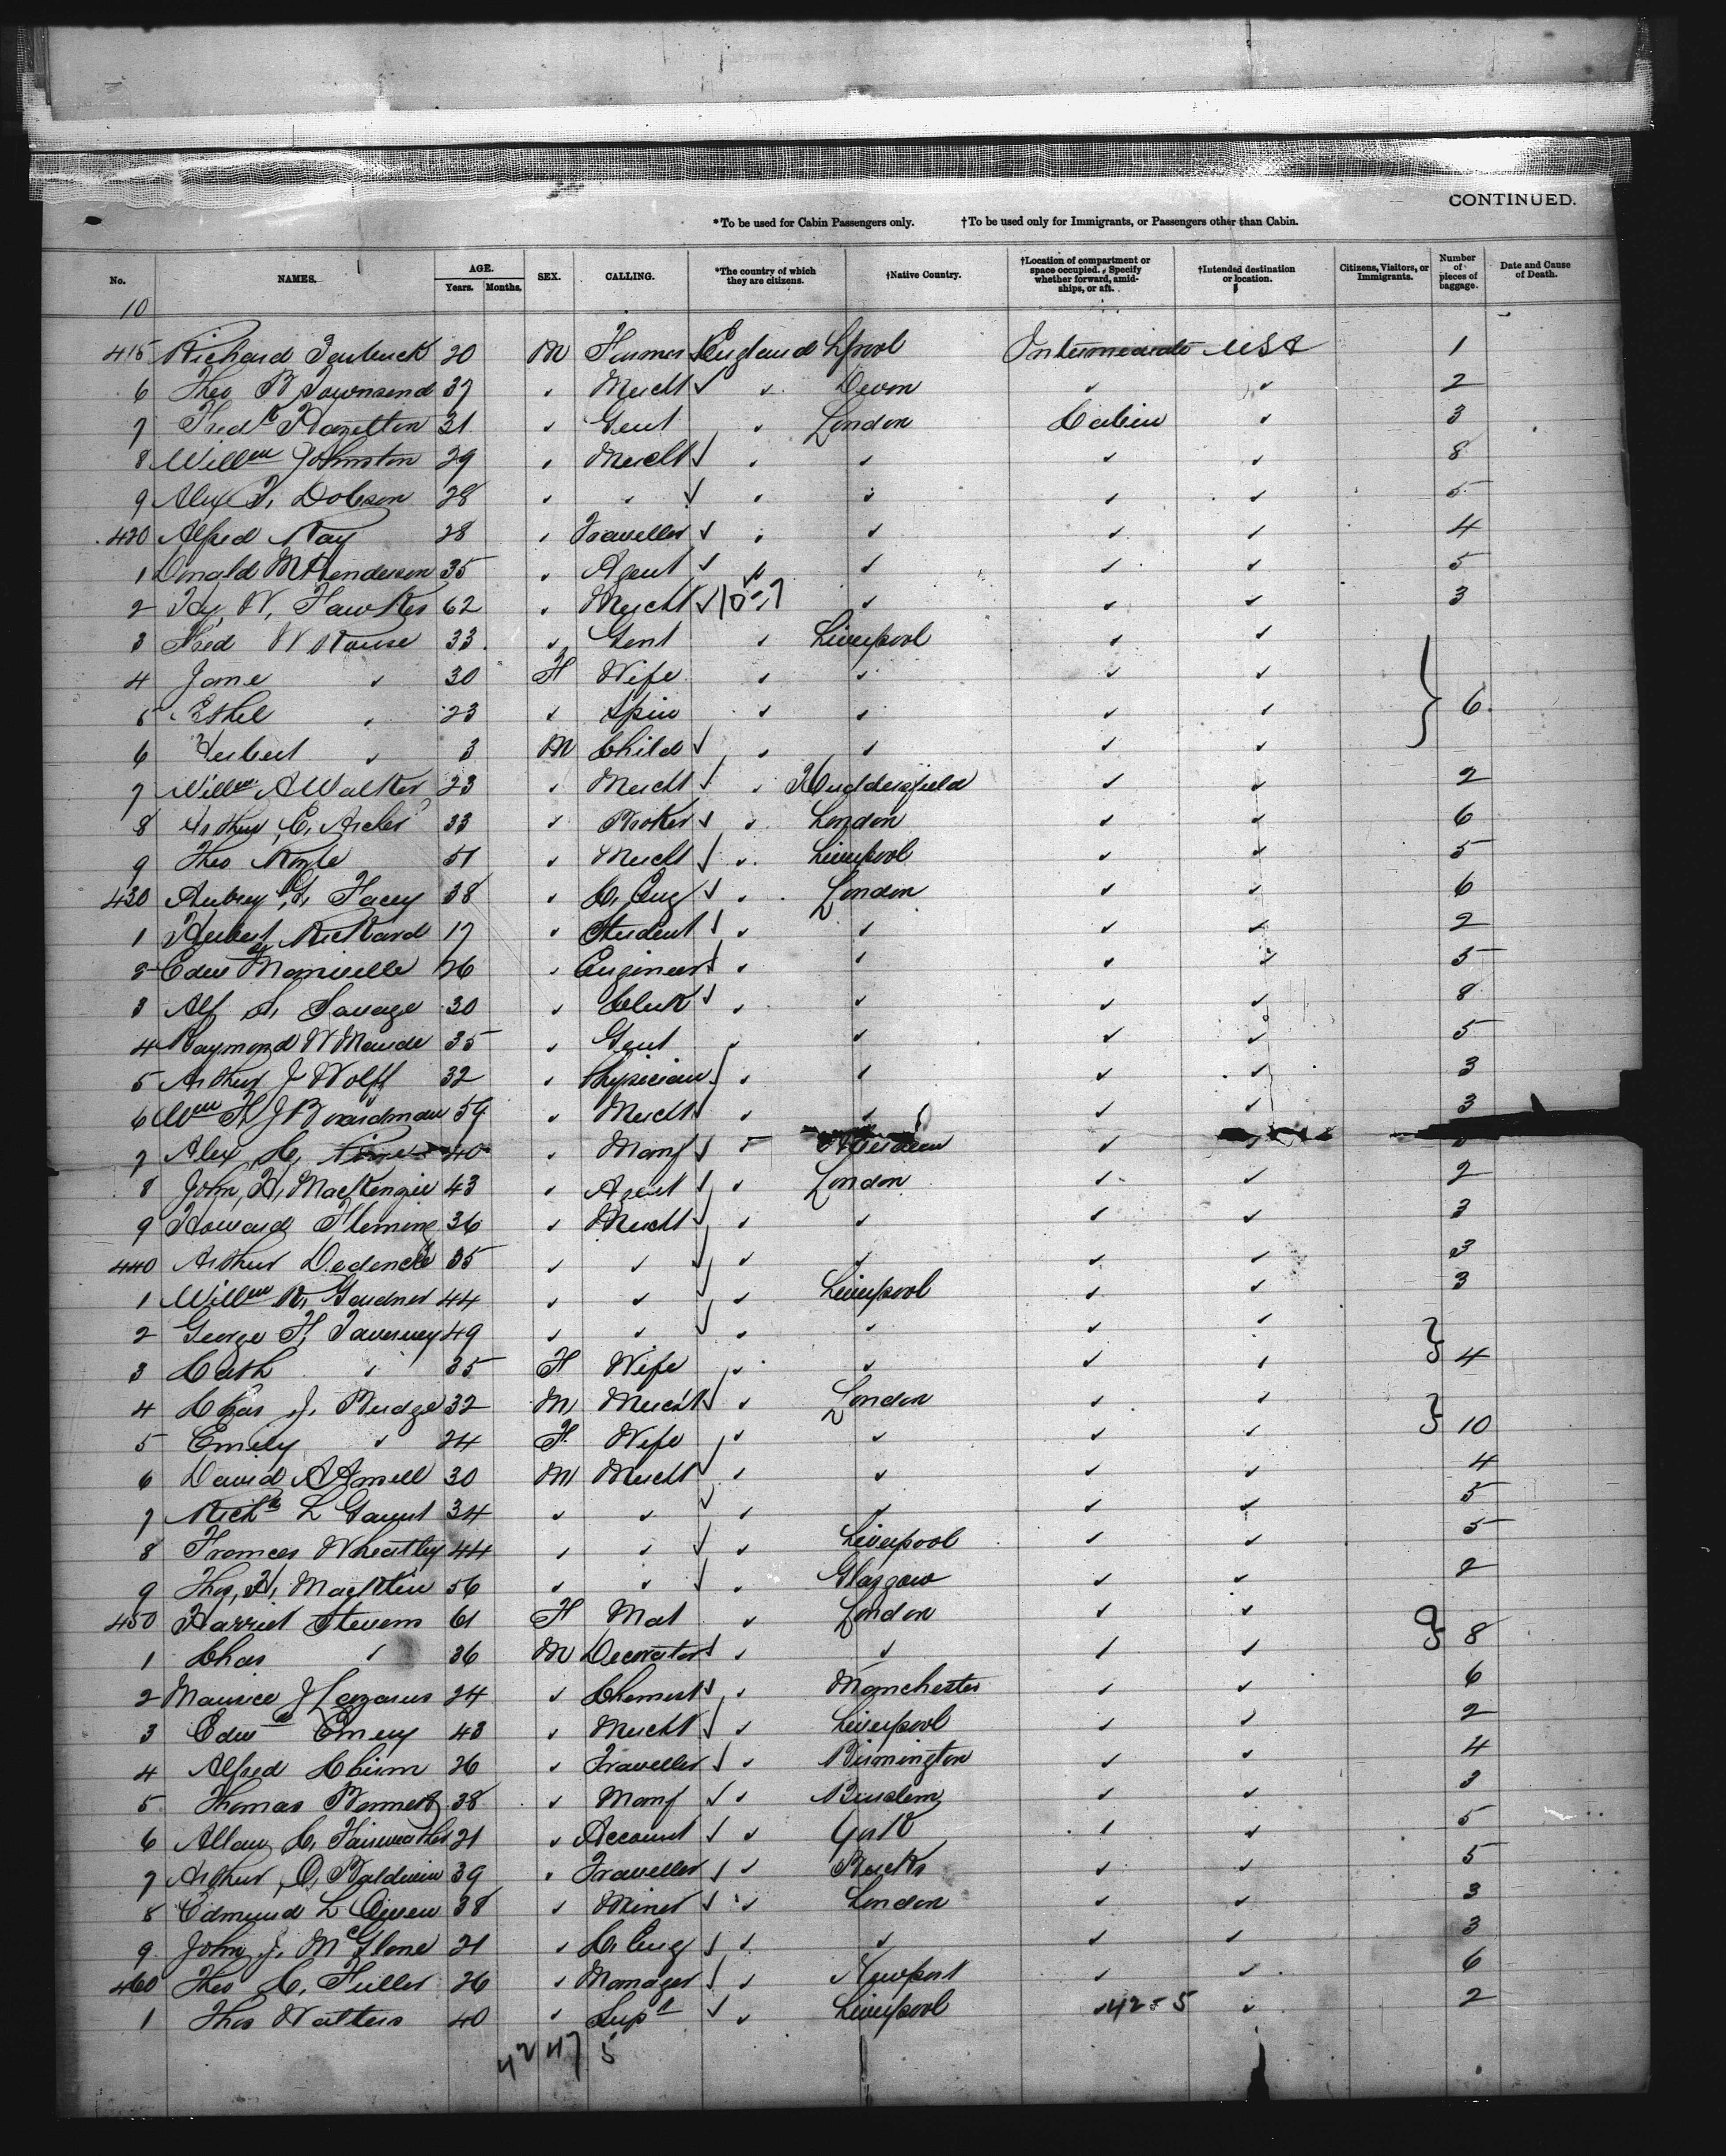 CONTINUED.
*To be used for Cabin Passengers only. †To be used only for Immigrants, or Passengers other than Cabin.
No. NAMES. AGE. Years. Months. SEX. CALLING. *The country of which they are citizens. †Native Country. †Location of compartment or space occupied. Specify whether forward, amidships, or aft. †Intended destination or location. Citizens, Visitors, or Immigrants. Number of pieces of baggage. Date and Cause of Death.
10
415 Richard Tarbuck 20 M Farmer England Lpool Intermediate USA 1
6 Theo B Townsend 37 Mercht Devon 2
7 Fredk Hazelton 31 Gent London Cabin 3
8 Willm Johnston 29 Mercht 8
9 Alex F. Dobson 28 5
420 Alfred Ray 28 Traveller 4
1 Donald M Henderson 35 Agent 5
2 Hy, W, Hawkes 62 Mercht 3
3 Fred W Rouse 33 Gent Liverpool
4 Jane 30 F Wife
5 Ethel 23 Spin 6
6 Herbert 3 M Child
7 Willm A Walker 23 Mercht Huddersfield 2
8 Arthur C. Archer 33 Broker London 6
9 Theo Royle 51 Mercht Liverpool 5
430 Aubrey G. Facey 38 C. Eng London 6
1 Herbert Rickard 17 Student 2
2 Edwd Manville 26 Engineer 5
3 Alf Savage 30 Clerk 8
4 Raymond W Maude 35 Gent 5
5 Arthur J Wolff 32 Physician 3
6 Wm H J Boardman 59 Mercht 3
7 Alex C. 40 Manf Aberdeen
8 John H. MacKenzie 43 Agent London 2
9 Howard Fleming 36 Mercht 3
440 Arthur 35 3
1 Willm R. Gardner 44 Liverpool 3
2 George H. 49
3 Cath 35 F Wife 4
4 Chas J. Budge 32 M Mercht London
5 Emily 24 F Wife 10
6 David A 30 M Mercht 4
7 Richd L Gaunt 34 5
8 Frances Wheatley 44 Liverpool 5
9 Thos, H, 56 Glasgow 2
450 Harriet Stevens 61 F Mat London
1 Chas 36 M Decorator 8
2 Maurice J Lazarus 24 Chemist Manchester 6
3 Edwd Emery 43 Mercht Liverpool 2
4 Alfred Chirm 26 Traveller 4
5 Thomas 38 Manf Burslem 3
6 Allan C. Fairweather 21 Account York 5
7 Arthur O. Baldwin 39 Traveller Bucks 5
8 Edmund L Owen 38 Miner London 3
9 John J. McGlone 21 C. Eng 3
460 Theo C. Fuller 26 Manager Newport 6
1 Thos Walters 40 Supt Liverpool 42-5 2
42 47 5